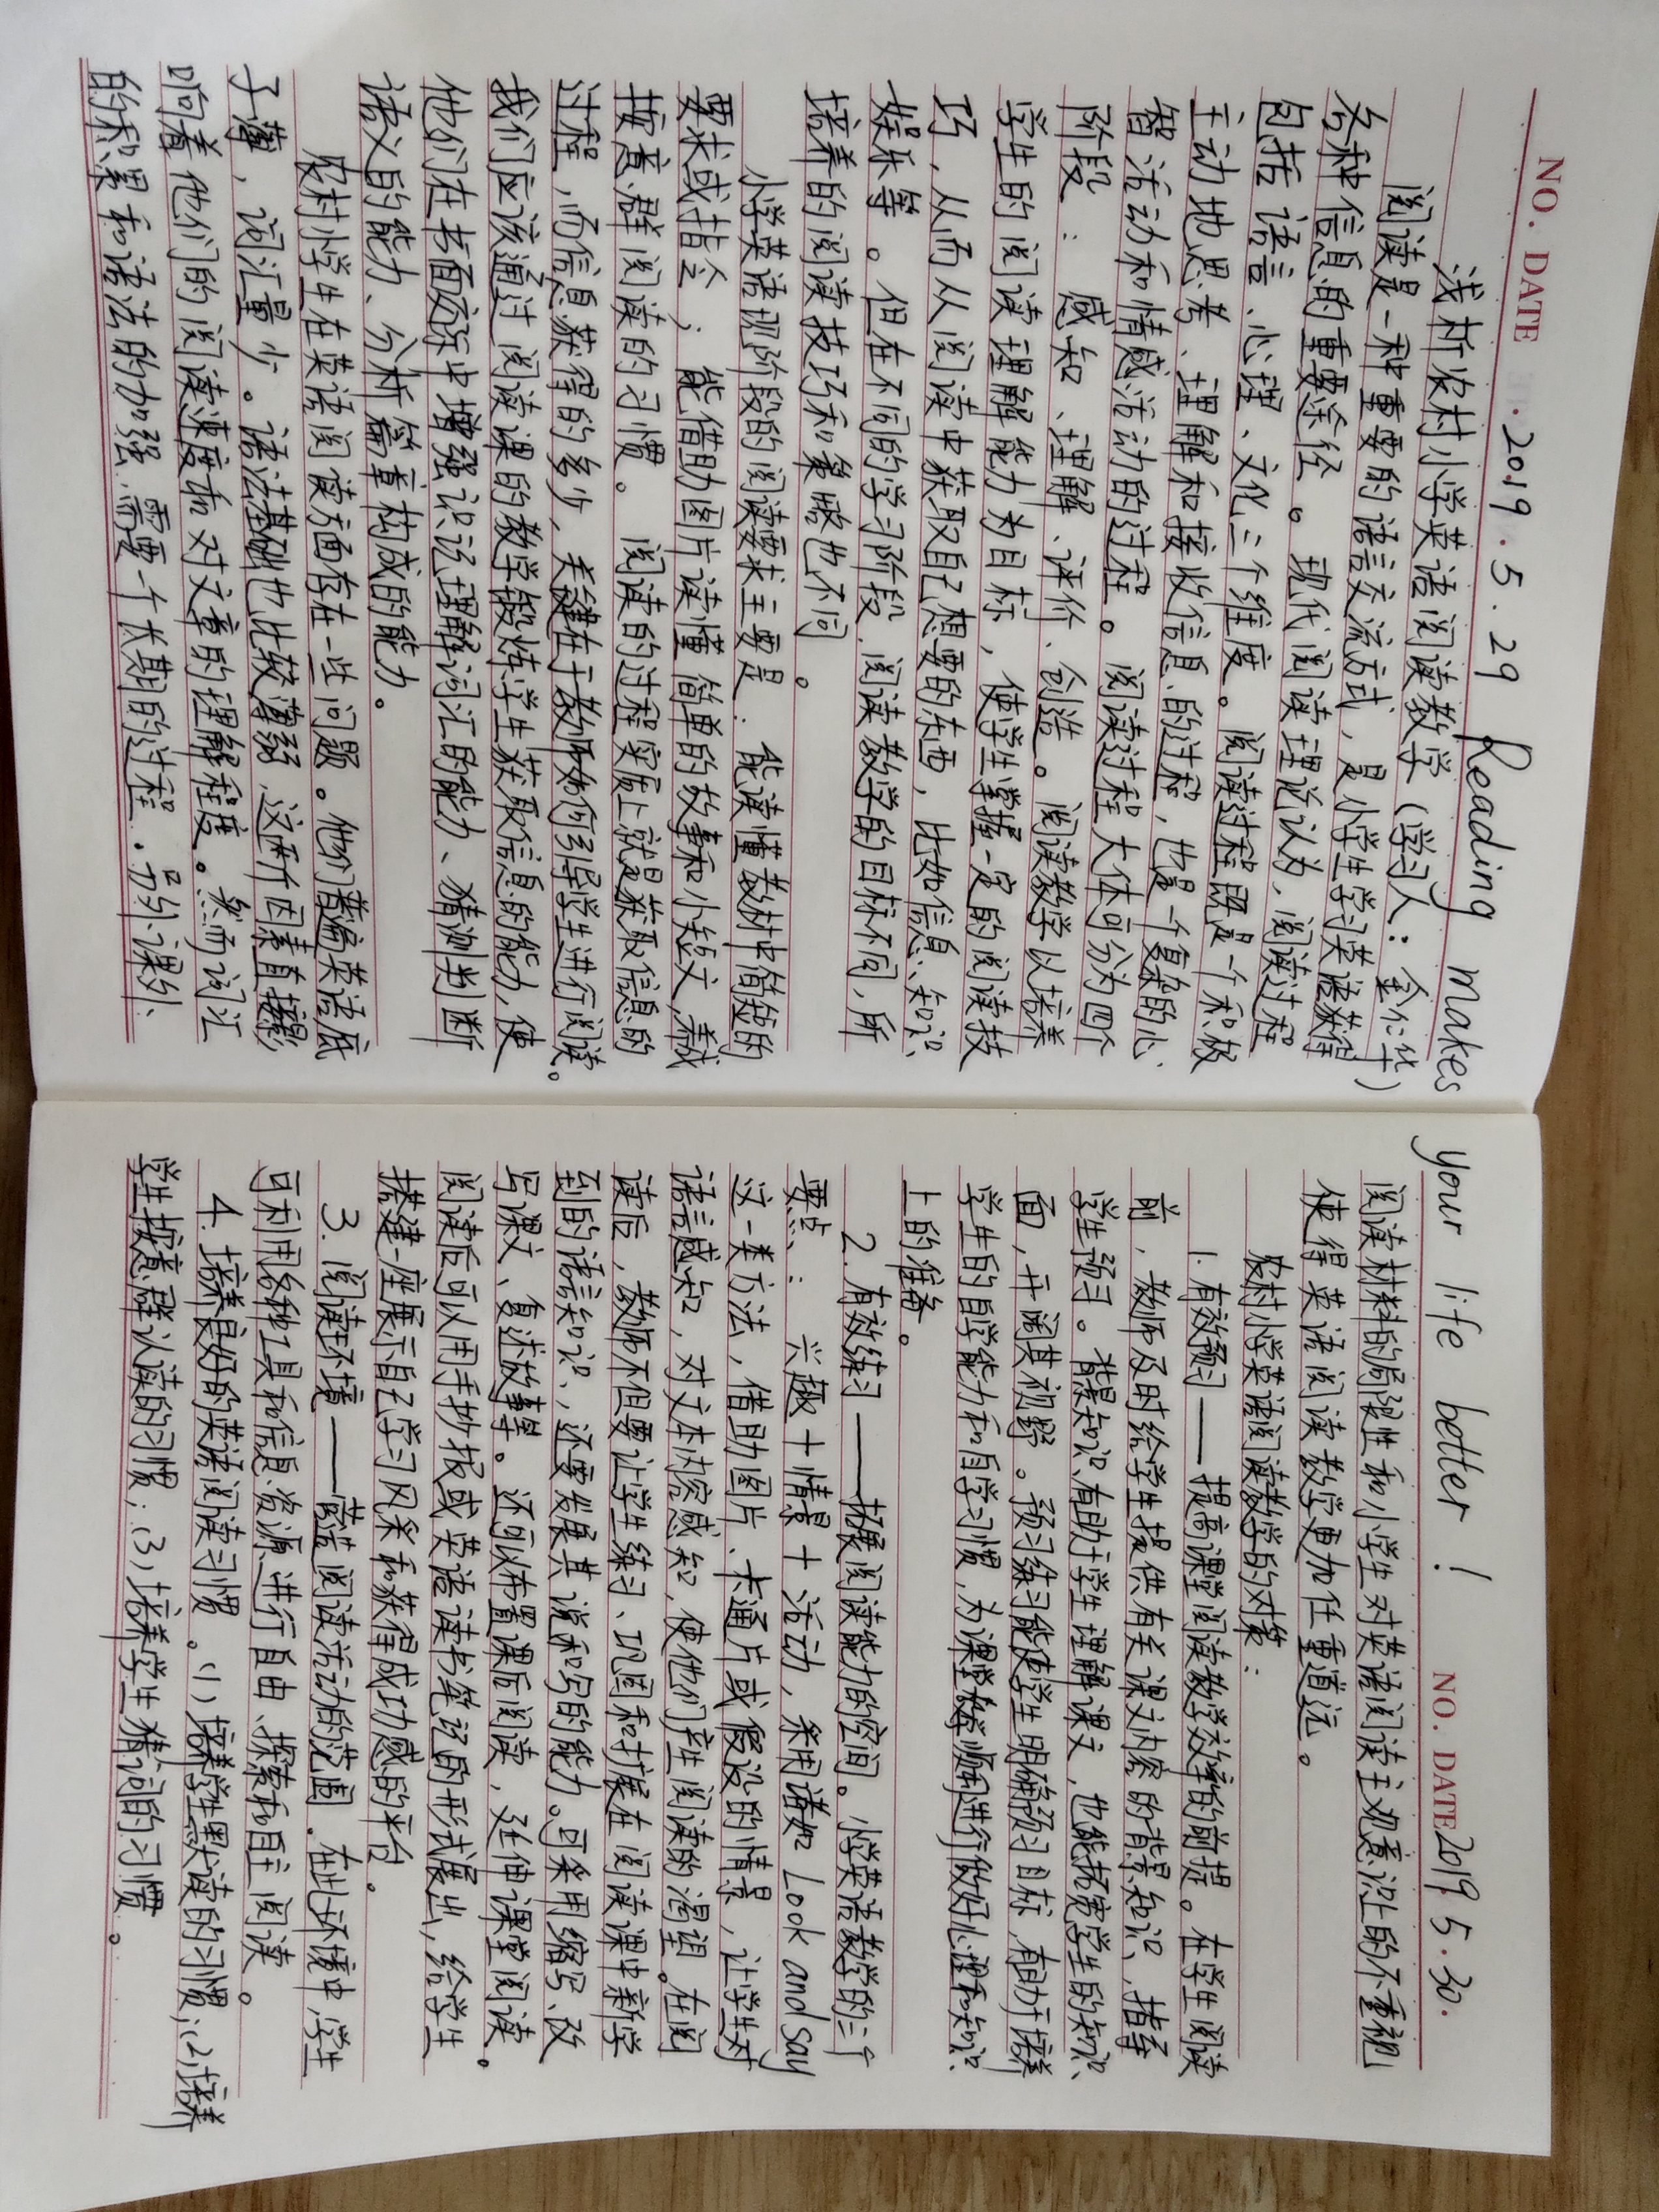 NO. DATE 2019.5.29 Reading makes
浅析农村小学英语阅读教学(学习人:金仁华)
阅读是一种重要的语言交流方式,是小学生学习英语获得
各种信息的重要途径。现代阅读理论认为,阅读过程
包括语言、心理、文化三个维度。阅读过程既是一个积极
主动地思考、理解和接收信息的过程,也是一个复杂的心
智活动和情感活动的过程。阅读过程大体可分为四个
阶段:感知、理解、评价、创造。阅读教学以培养
学生的阅读理解能力为目标,使学生掌握一定的阅读技
巧,从而从阅读中获取自己想要的东西,比如信息、知识、
娱乐等。但在不同的学习阶段,阅读教学的目标不同,所
培养的阅读技巧和策略也不同。
小学英语现阶段的阅读要求主要是:能读懂教材中简短的
要求或指令;能借助图片读懂简单的故事和小短文,养成
按意群阅读的习惯。阅读的过程实质上就是获取信息的
过程,而信息获得的多少,关键在于教师如何引导学生进行阅读。
我们应该通过阅读课的教学锻炼学生获取信息的能力,使
他们在书面材料中增强识记理解词汇的能力、猜测判断
语义的能力、分析篇章构成的能力。
农村小学生在英语阅读方面存在一些问题。他们普遍英语底
子薄,词汇量少。语法基础也比较薄弱,这两个因素直接影
响着他们的阅读速度和对文章的理解程度。然而词汇
的积累和语法的加强,需要一个长期的过程。另外,课外
your life better! NO. DATE 2019.5.30.
阅读材料的局限性和小学生对英语阅读主观意识上的不重视
使得英语阅读教学更加任重道远。
农村小学英语阅读教学的对策:
1.有效预习——提高课堂阅读教学效率的前提。在学生阅读
前,教师及时给学生提供有关课文内容的背景知识,指导
学生预习。背景知识有助于学生理解课文,也能拓宽学生的知识
面,开阔其视野。预习练习能使学生明确预习目标,有助于培养
学生的自学能力和自学习惯,为课堂教学顺利进行做好心理和知识
上的准备。
2.有效练习——拓展阅读能力的空间。小学英语教学的三个
要点:兴趣+情景+活动,采用诸如Look and say
这一类方法,借助图片、卡通片或假设的情景,让学生对
语言感知,对文本内容感知,使他们产生阅读的渴望。在阅
读后,教师不但要让学生练习、巩固和扩展在阅读课中新学
到的语言知识,还要发展其说和写的能力。可采用缩写、改
写课文、复述故事等。还可以布置课后阅读,延伸课堂阅读。
阅读后可以用手抄报或英语读书笔记的形式展出,给学生
搭建一座展示自己学习风采和获得成功感的平台。
3.阅读环境——营造阅读活动的范围。在此环境中,学生
可利用各种工具和信息资源进行自由、探索和自主阅读。
4.培养良好的英语阅读习惯。(1)培养学生默读的习惯;(2)培养
学生按意群认读的习惯;(3)培养学生猜词的习惯。